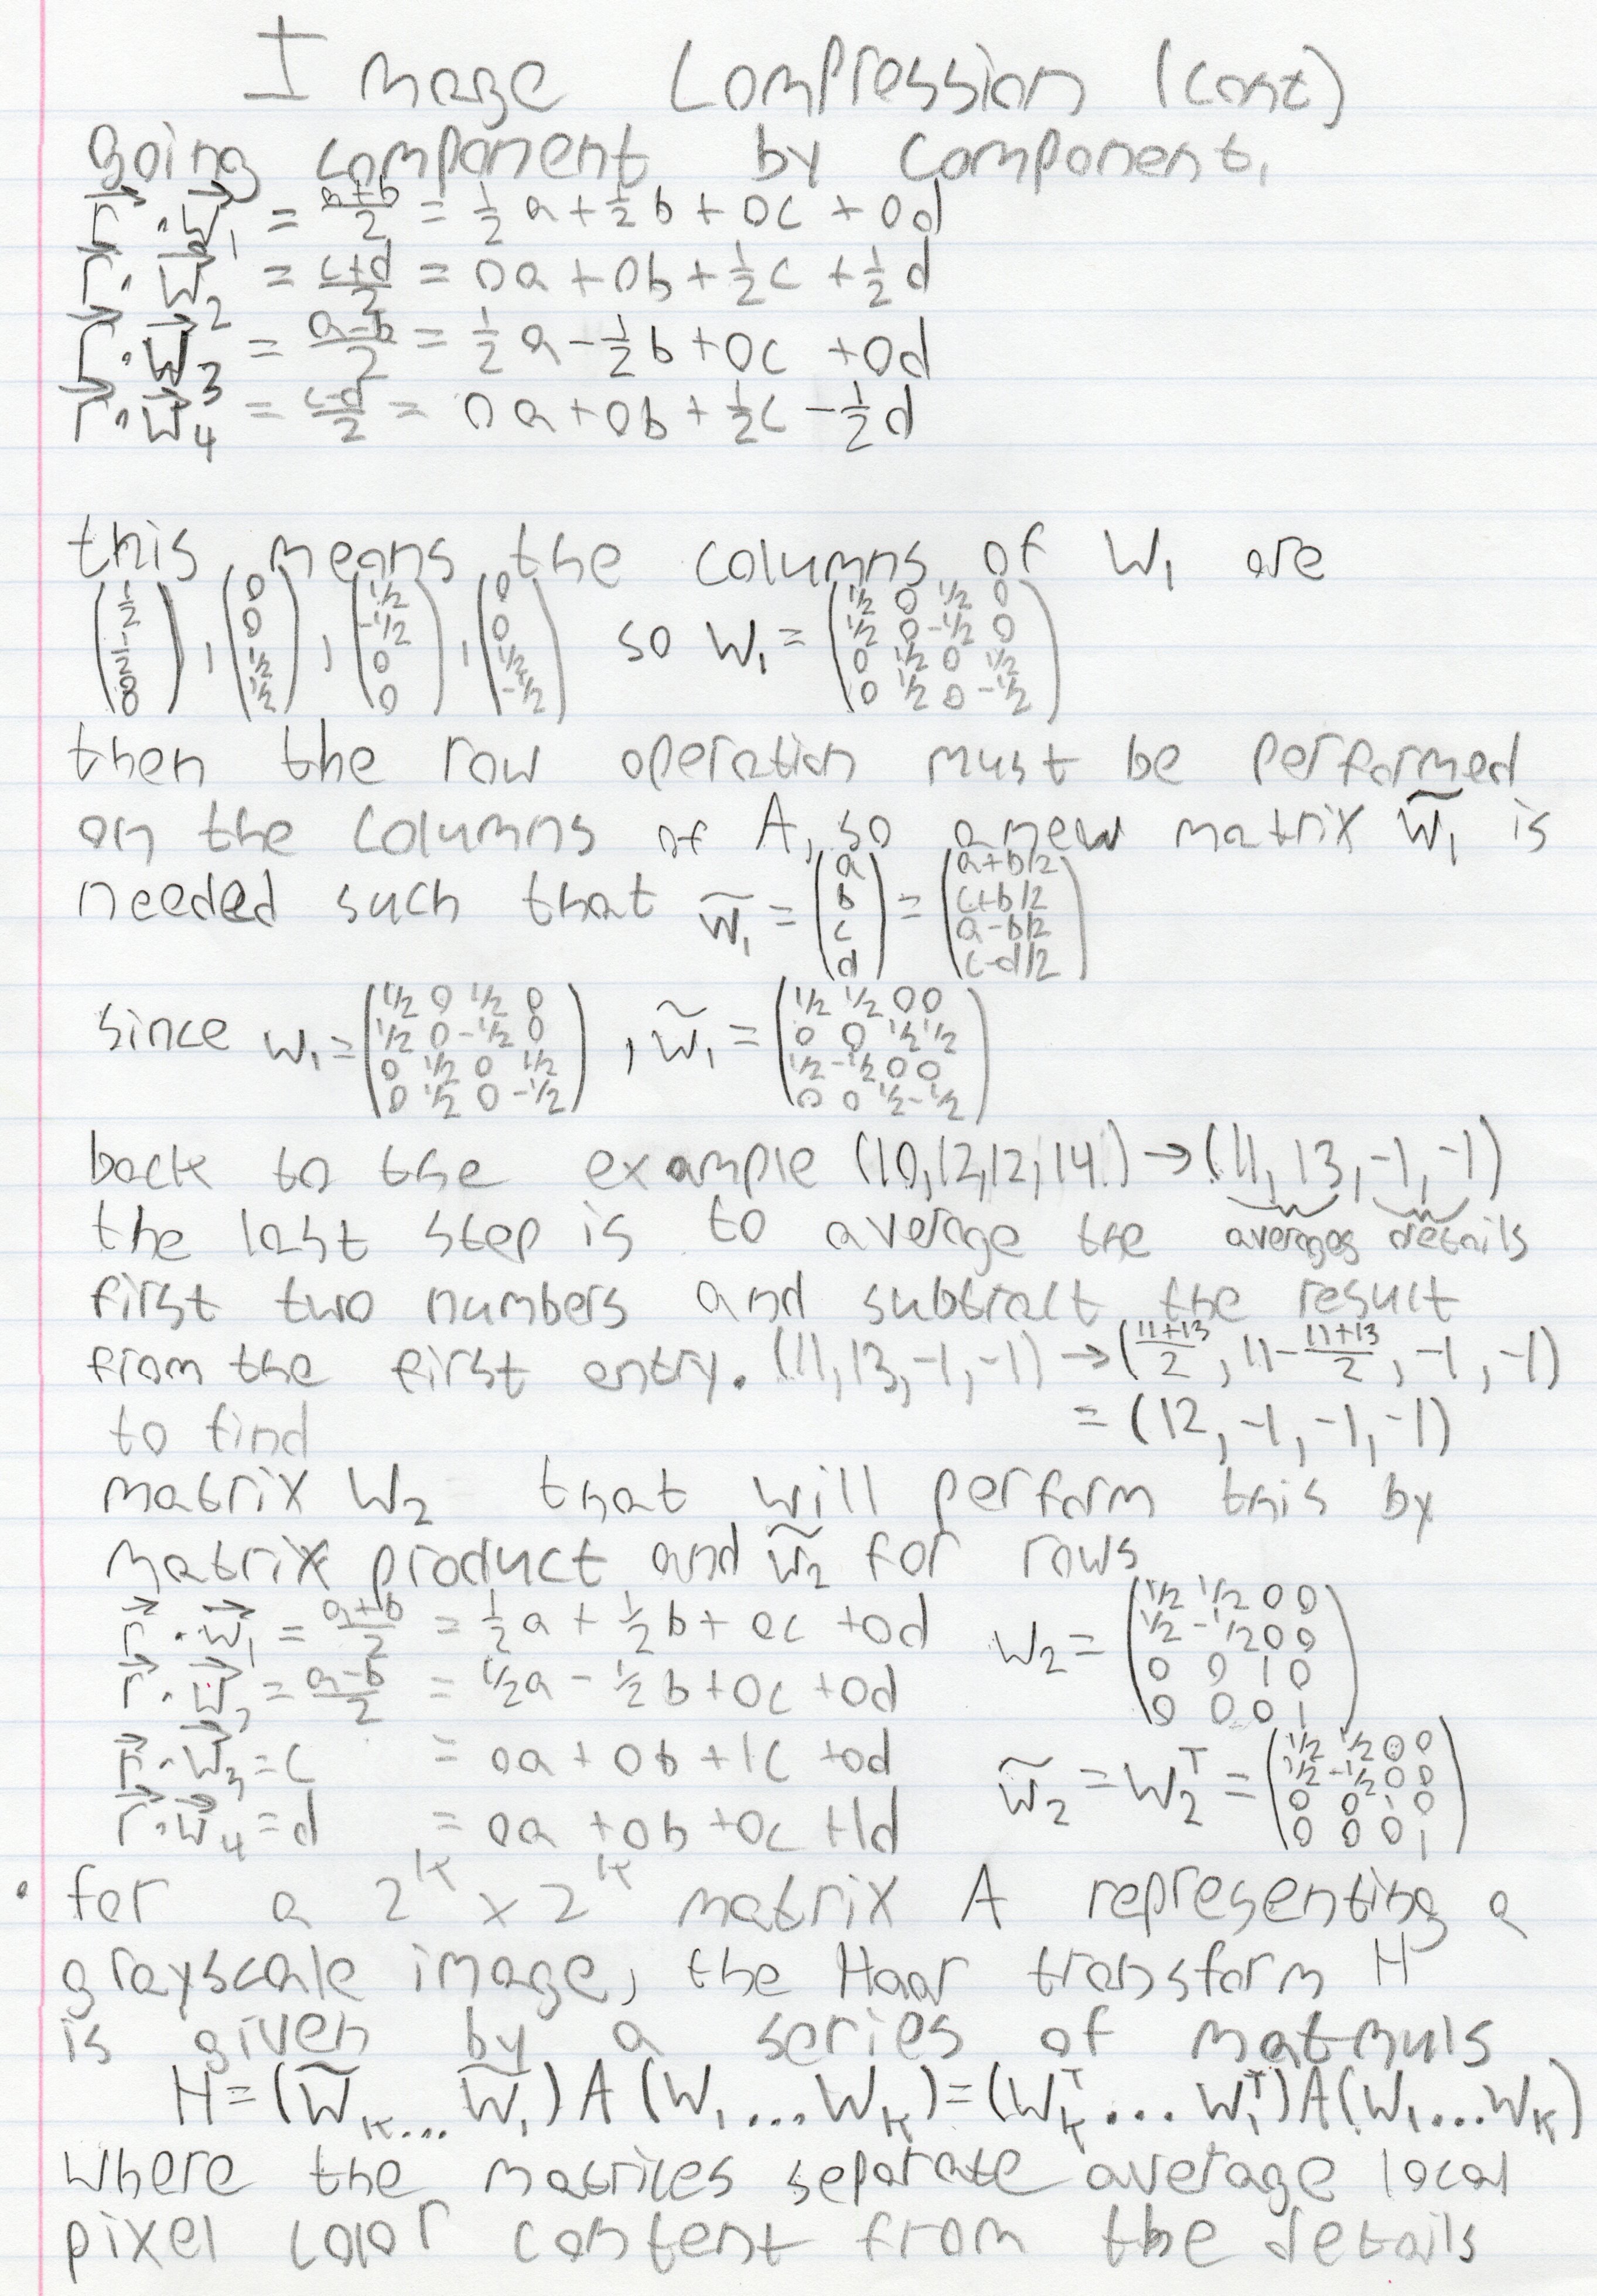 Image Compression (cont)
going component by component,
r⃗ · w⃗₁ = (a+b)/2 = ½a + ½b + 0c + 0d
r⃗ · w⃗₂ = (c+d)/2 = 0a + 0b + ½c + ½d
r⃗ · w⃗₃ = (a-b)/2 = ½a - ½b + 0c + 0d
r⃗ · w⃗₄ = (c-d)/2 = 0a + 0b + ½c - ½d
this means the columns of W₁ are
(1/2, 1/2, 0, 0), (0, 0, 1/2, 1/2), (1/2, -1/2, 0, 0), (0, 0, 1/2, -1/2) so W₁ = (1/2 0 1/2 0; 1/2 0 -1/2 0; 0 1/2 0 1/2; 0 1/2 0 -1/2)
then the row operation must be performed
on the columns of A, so a new matrix W̃₁ is
needed such that W̃₁ = (a; b; c; d) = (a+b/2; c+b/2; a-b/2; c-d/2)
since W₁ = (1/2 0 1/2 0; 1/2 0 -1/2 0; 0 1/2 0 1/2; 0 1/2 0 -1/2), W̃₁ = (1/2 1/2 0 0; 0 0 1/2 1/2; 1/2 -1/2 0 0; 0 0 1/2 -1/2)
back to the example (10,12,12,14) → (11, 13, -1, -1)
the last step is to average the averages details
first two numbers and subtract the result
from the first entry. (11,13,-1,-1) → ((11+13)/2, 11-(11+13)/2, -1, -1)
= (12, -1, -1, -1)
to find
matrix W₂ that will perform this by
matrix product and W̃₂ for rows
r⃗ · w⃗₁ = (a+b)/2 = ½a + ½b + 0c + 0d W₂ = (1/2 1/2 0 0; 1/2 -1/2 0 0; 0 0 1 0; 0 0 0 1)
r⃗ · w⃗₂ = (a-b)/2 = ½a - ½b + 0c + 0d
r⃗ · w⃗₃ = c = 0a + 0b + 1c + 0d W̃₂ = W₂ᵀ = (1/2 1/2 0 0; 1/2 -1/2 0 0; 0 0 1 0; 0 0 0 1)
r⃗ · w⃗₄ = d = 0a + 0b + 0c + 1d
• for a 2ᵏ × 2ᵏ matrix A representing a
grayscale image, the Haar transform H
is given by a series of matmuls
H = (W̃ₖ... W̃₁) A (W₁...Wₖ) = (Wₖᵀ... W₁ᵀ) A (W₁...Wₖ)
where the matrices separate average local
pixel color content from the details